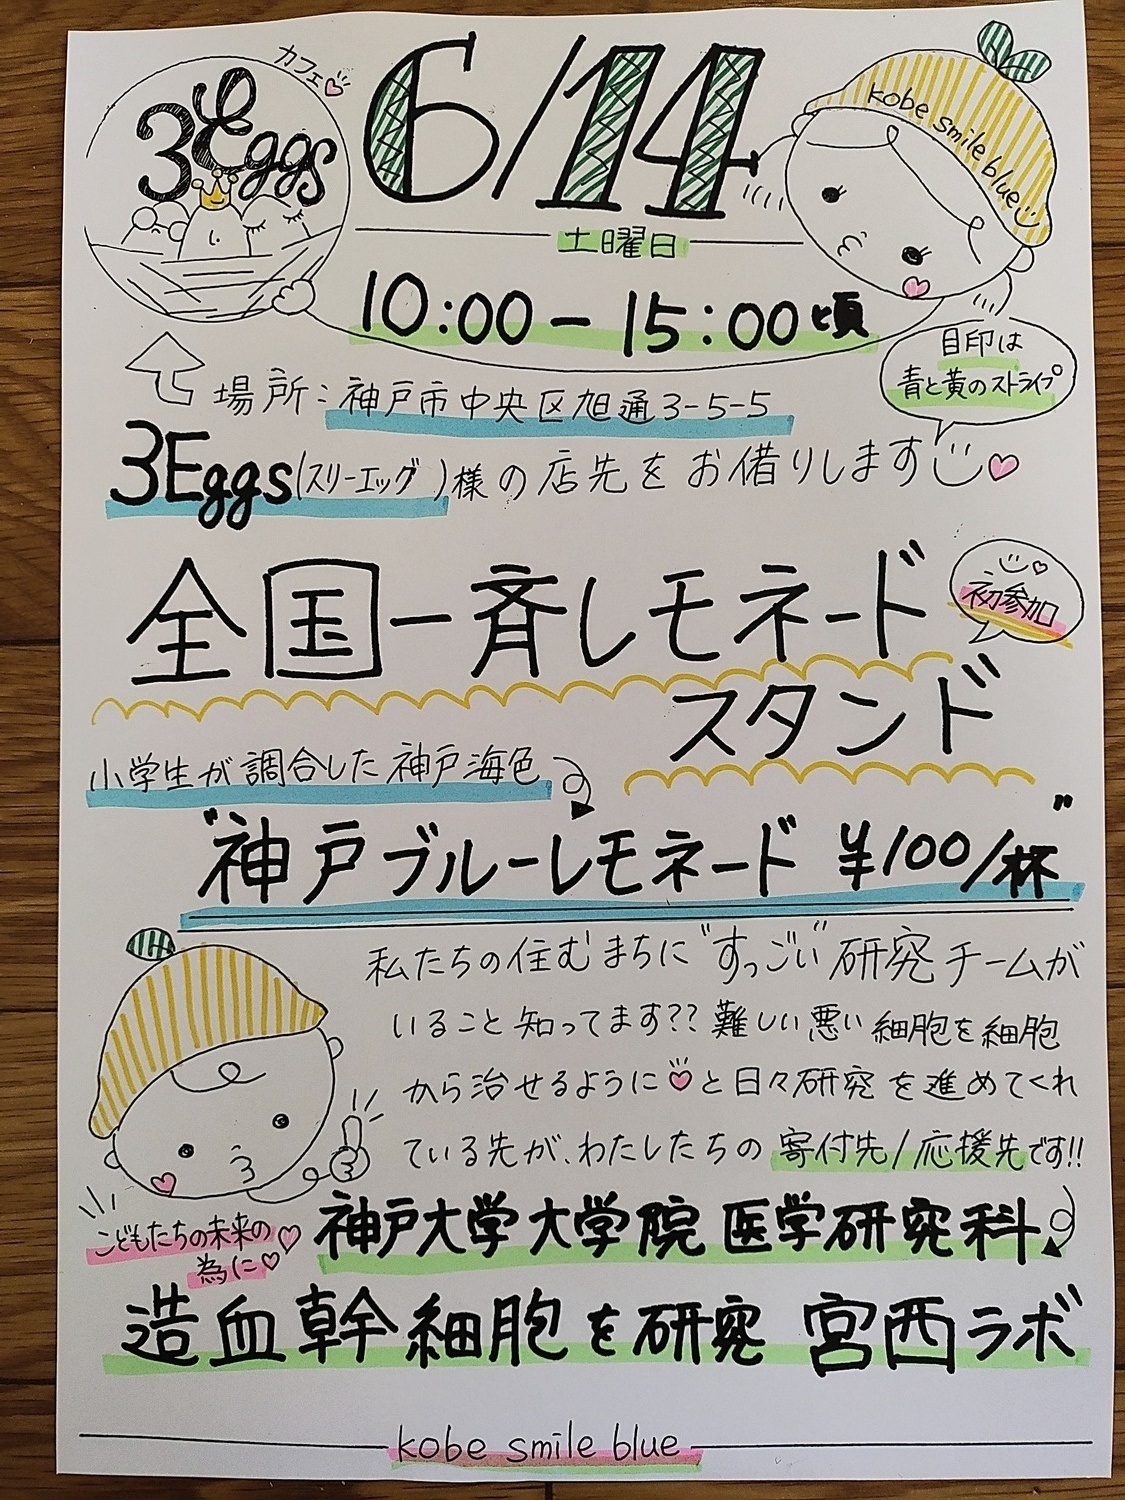 カフェ
3Eggs
6/14
kobe smile blue
土曜日
10:00-15:00頃
目印は
青と黄のストライプ
場所:神戸市中央区旭通3-5-5
3Eggs(スリーエッグ)様の店先をお借りします
全国一斉レモネード
初参加
スタンド
小学生が調合した神戸海色
"神戸ブルーレモネード ¥100/杯"
私たちの住むまちに"すっごい"研究チームが
いること知ってます??難しい悪い細胞を細胞
から治せるように♡と日々研究を進めてくれ
ている先が、わたしたちの寄付先/応援先です!!
こどもたちの未来の♡
為に♡
神戸大学大学院医学研究科
造血幹細胞を研究 宮西ラボ
kobe smile blue